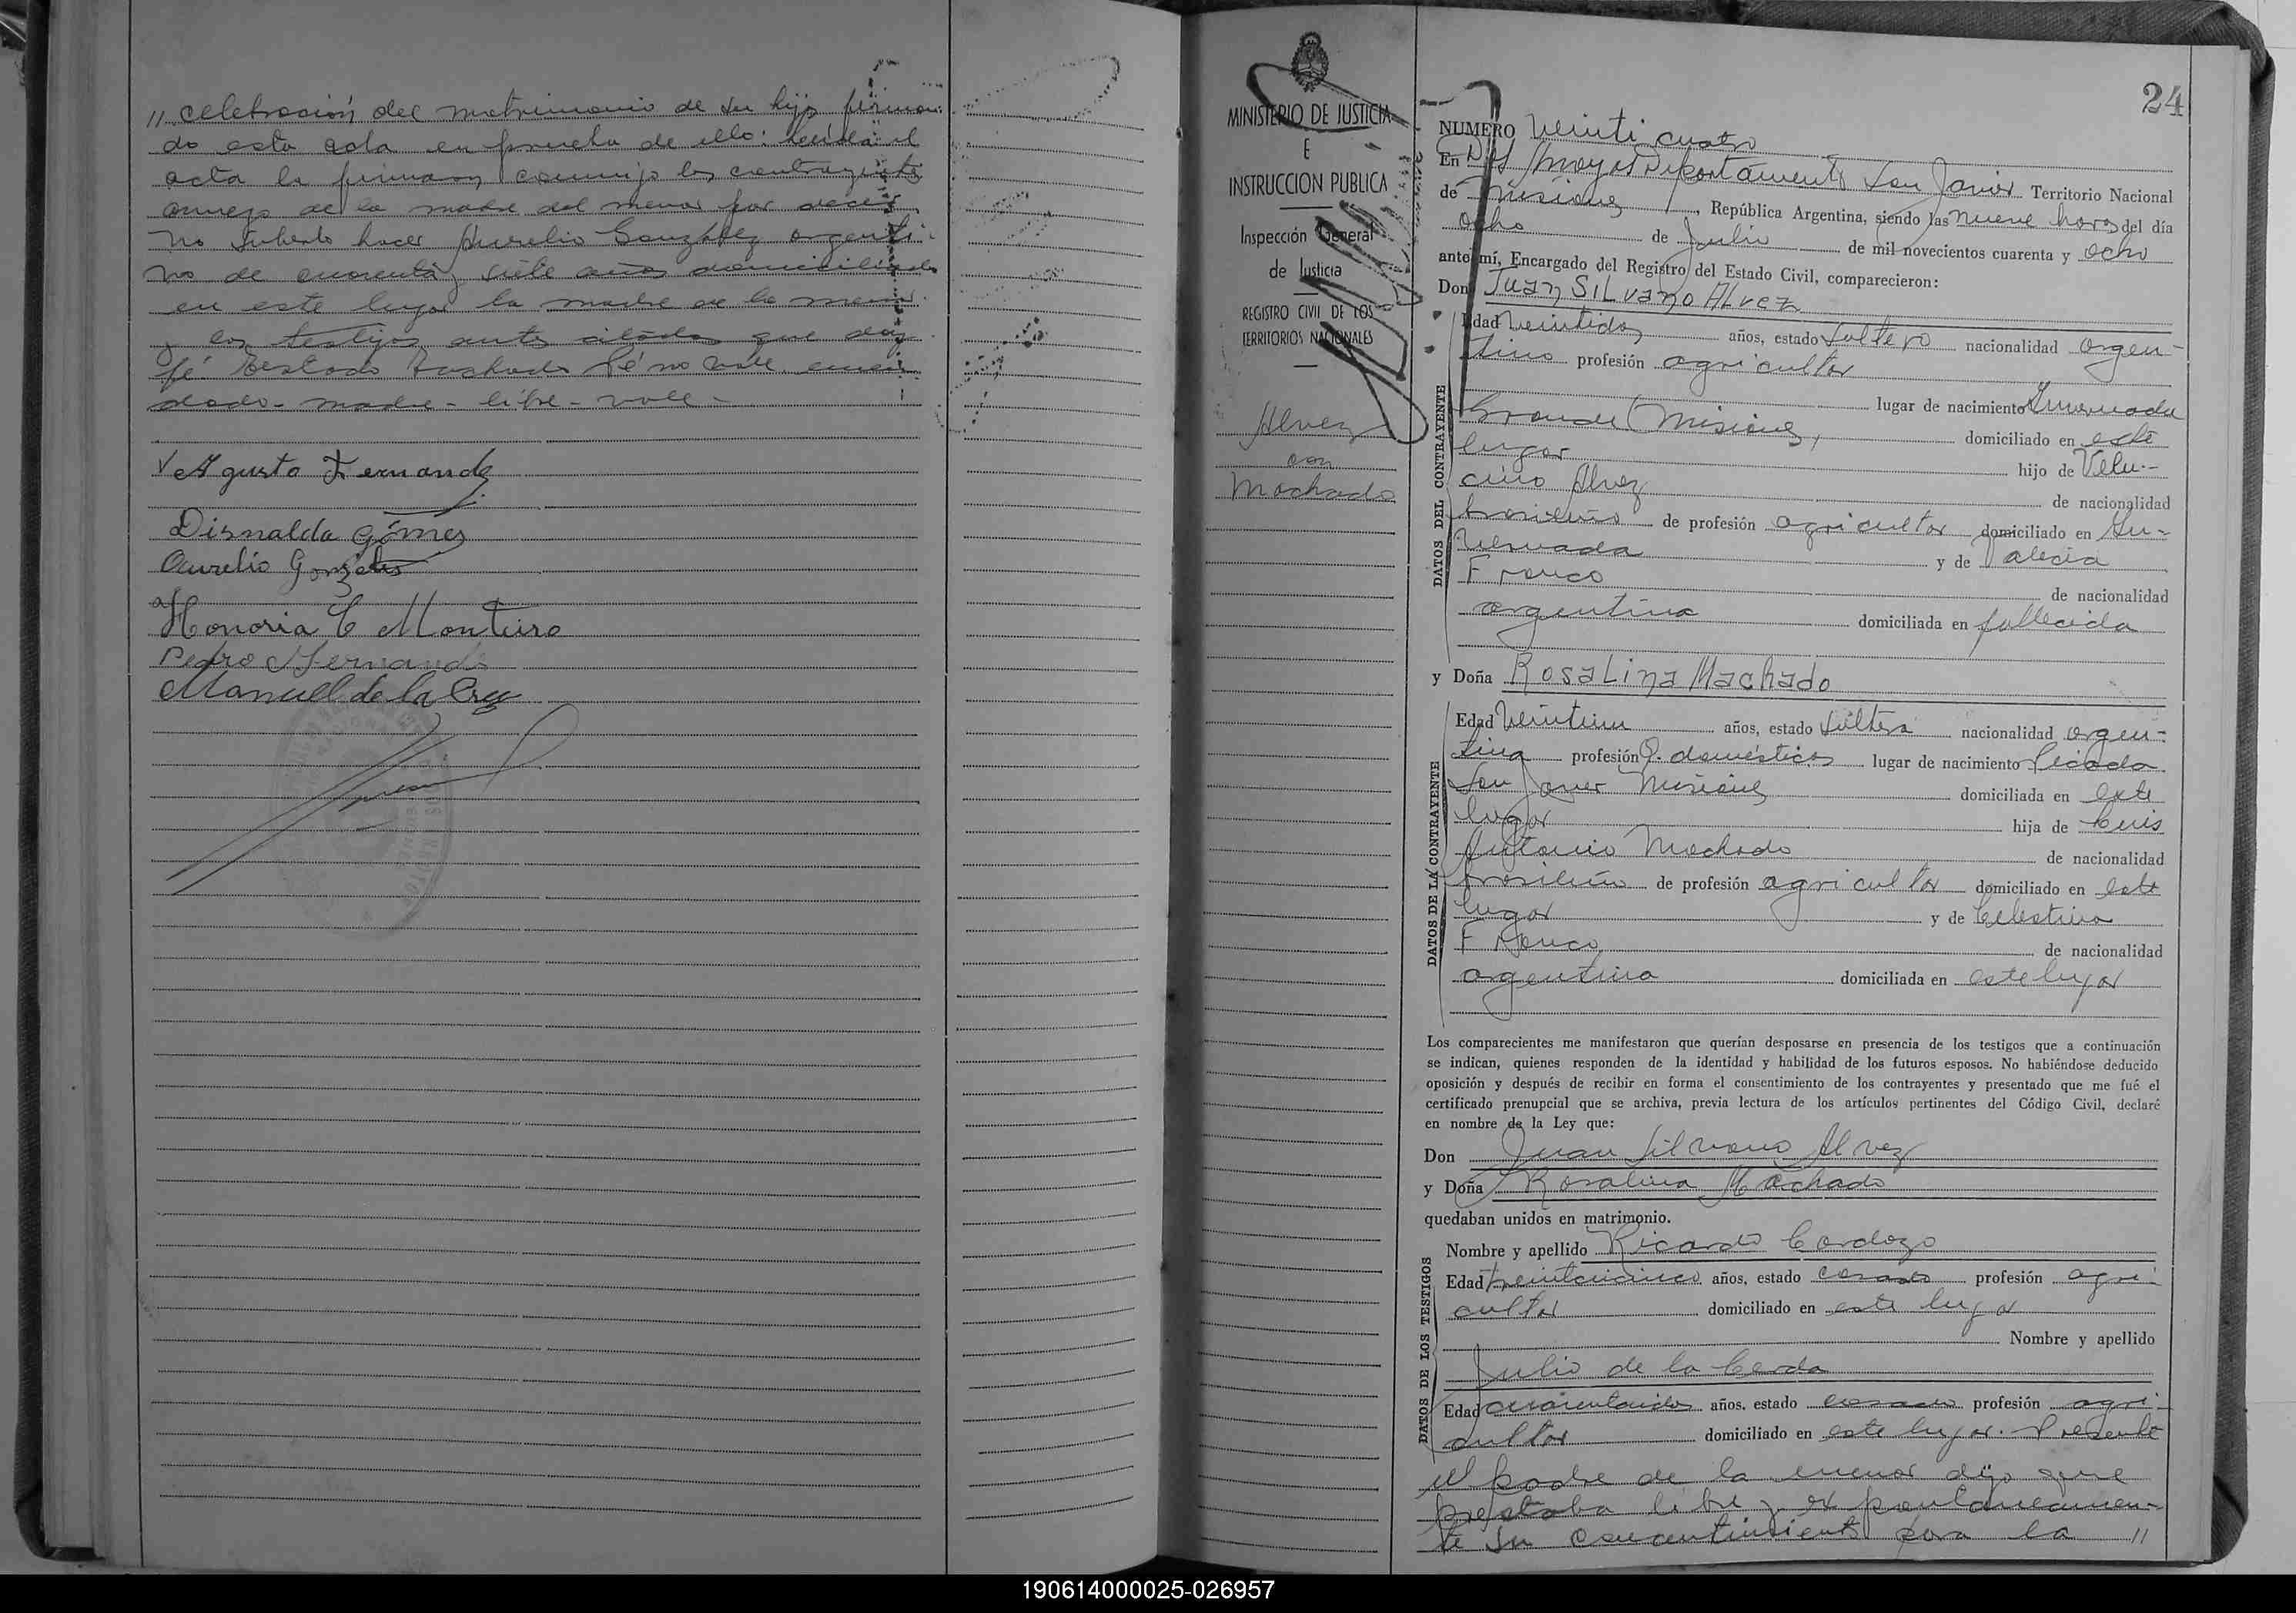 // celebración del matrimonio de su hijo firman
do esta acta en prueba de ello: leída el
acta la firmaron conmigo los contrayentes
a ruego de la madre del menor por decir
no saberlo hacer Aurelio González argenti-
no de cuarenta y siete años domiciliado
en este lugar la madre de la menor
y los testigos antes citados que doy
fé Testado no vale enmen
dado - madre - libre - vale -
Agusto Fernandz
Disnalda Gómes
Aurelio Gonzales
Honoria C Monteiro
Pedro Hernando
Manuel de la Cruz
MINISTERIO DE JUSTICIA
E
INSTRUCCION PUBLICA
Inspección General
de Justicia
REGISTRO CIVIL DE LOS
TERRITORIOS NACIONALES
Alvez
con
Machado
24
NUMERO Veinti cuatro
En Departamento San Javier Territorio Nacional
de Misiones, República Argentina, siendo las nueve horas del día
ocho de Julio de mil novecientos cuarenta y ocho
ante mí, Encargado del Registro del Estado Civil, comparecieron:
Don Juan SILvano ALvez
DATOS DEL CONTRAYENTE
Edad Veintidos años, estado Soltero nacionalidad argen-
tino profesión agricultor
lugar de nacimiento Invernada
Grande (Misiones, domiciliado en este
lugar hijo de Velu-
cino Alvez de nacionalidad
brasileño de profesión agricultor domiciliado en In-
vernada y de Valecia
Franco de nacionalidad
argentina domiciliada en fallecida
y Doña RosaLina Machado
DATOS DE LA CONTRAYENTE
Edad Veintiun años, estado Soltera nacionalidad argen-
tina profesión Q. domésticos lugar de nacimiento Picada
San Javier Misiones domiciliada en este
lugar hija de Luis
Antonio Machado de nacionalidad
brasileño de profesión agricultor domiciliado en este
lugar y de Celestina
Franco de nacionalidad
argentina domiciliada en este lugar
Los comparecientes me manifestaron que querían desposarse en presencia de los testigos que a continuación
se indican, quienes responden de la identidad y habilidad de los futuros esposos. No habiéndose deducido
oposición y después de recibir en forma el consentimiento de los contrayentes y presentado que me fué el
certificado prenupcial que se archiva, previa lectura de los artículos pertinentes del Código Civil, declaré
en nombre de la Ley que:
Don Juan Silvano Alvez
y Doña Rosalina Machado
quedaban unidos en matrimonio.
DATOS DE LOS TESTIGOS
Nombre y apellido Ricardo Cardozo
Edad treintaicinco años, estado casado profesión agri-
cultor domiciliado en este lugar
Nombre y apellido
Julio de la Cerda
Edad cuarentaidos años. estado casado profesión agri-
cultor domiciliado en este lugar. Presente
el padre de la menor dijo que
prestaba libre y expontaneamen-
te su concentimiento para la //
190614000025-026957